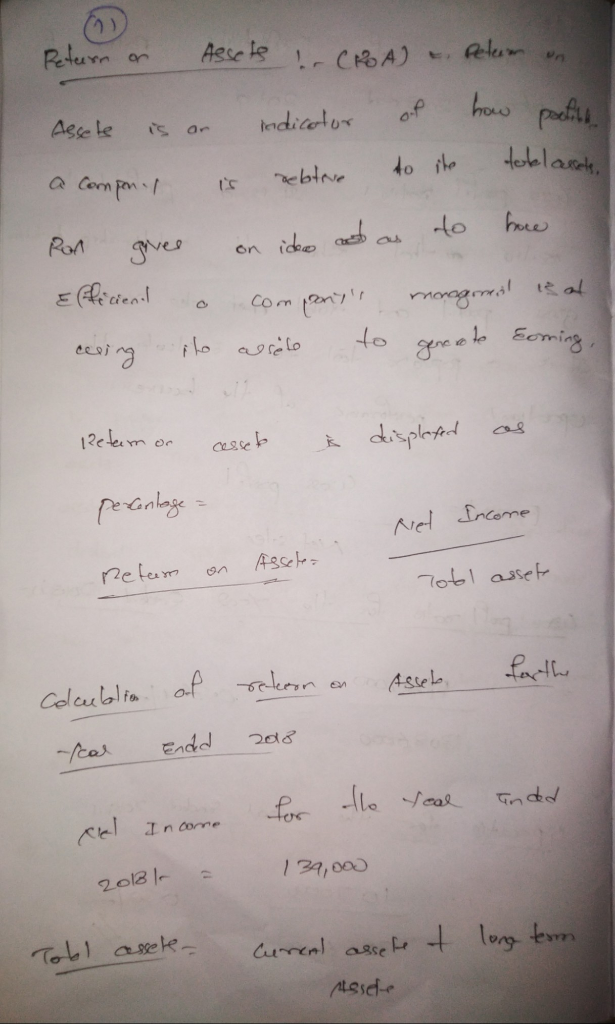 11
Return on Assets :- (ROA) = Return on
Assets is an indicator of how profitb
a company is relative to its total assets.
ROA gives an idea as to how
Efficient a company's management is at
using its assets to generate Earning.
Return on assets is displayed as
percentage =
Return on Assets = Net Income
Total assets
Calculation of return on Assets for the
year Ended 2018
Net Income for the Year Ended
2018 = 139,000
Total assets = Current assets + long term
Assets